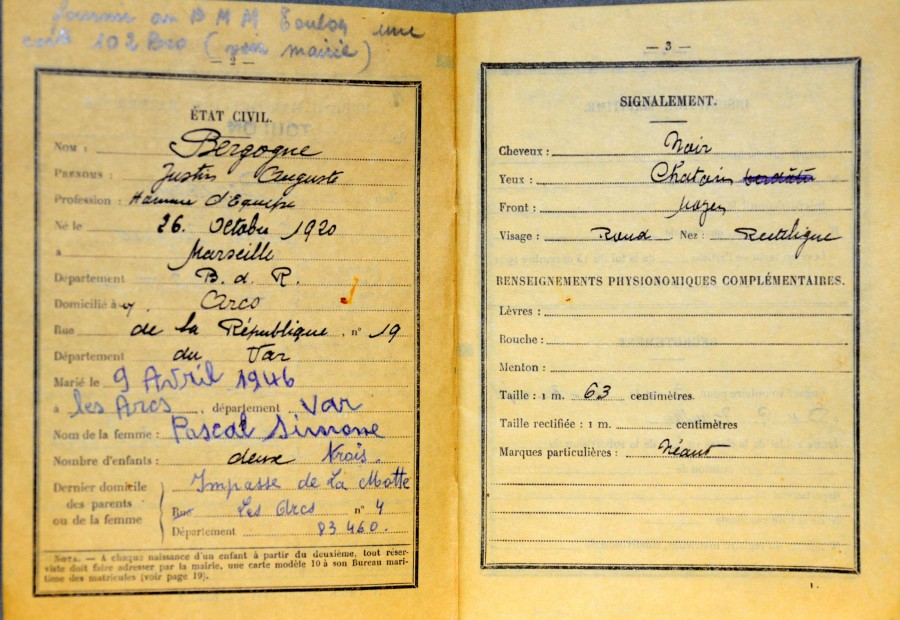 fournir au B M M Toulon une
carte 10 2 Bro (voir mairie)
— 2 —
ÉTAT CIVIL.
Nom : Bergogne
Prénoms : Justin Auguste
Profession : Homme d'Equipe
Né le 26. Octobre 1920
a Marseille
Département B. d. R.
Domicilié à Arcs
Rue de la République, n° 19
Département du Var
Marié le 9 Avril 1946
a les Arcs, département Var
Nom de la femme : Pascal Simone
Nombre d'enfants : deux trois.
Dernier domicile
des parents
ou de la femme
Impasse de La Motte
Rue Les Arcs n° 4
Département 83460.
Nota. — A chaque naissance d'un enfant à partir du deuxième, tout réser-
viste doit faire adresser par la mairie, une carte modèle 10 à son Bureau mari-
time des matricules (voir page 19).
— 3 —
SIGNALEMENT.
Cheveux : Noir
Yeux : Chatain verdâtre
Front : Moyen
Visage : Rond Nez : Rectiligne
RENSEIGNEMENTS PHYSIONOMIQUES COMPLÉMENTAIRES.
Lèvres :
Bouche :
Menton :
Taille : 1 m. 63 centimètres.
Taille rectifiée : 1 m. centimètres
Marques particulières : Néant